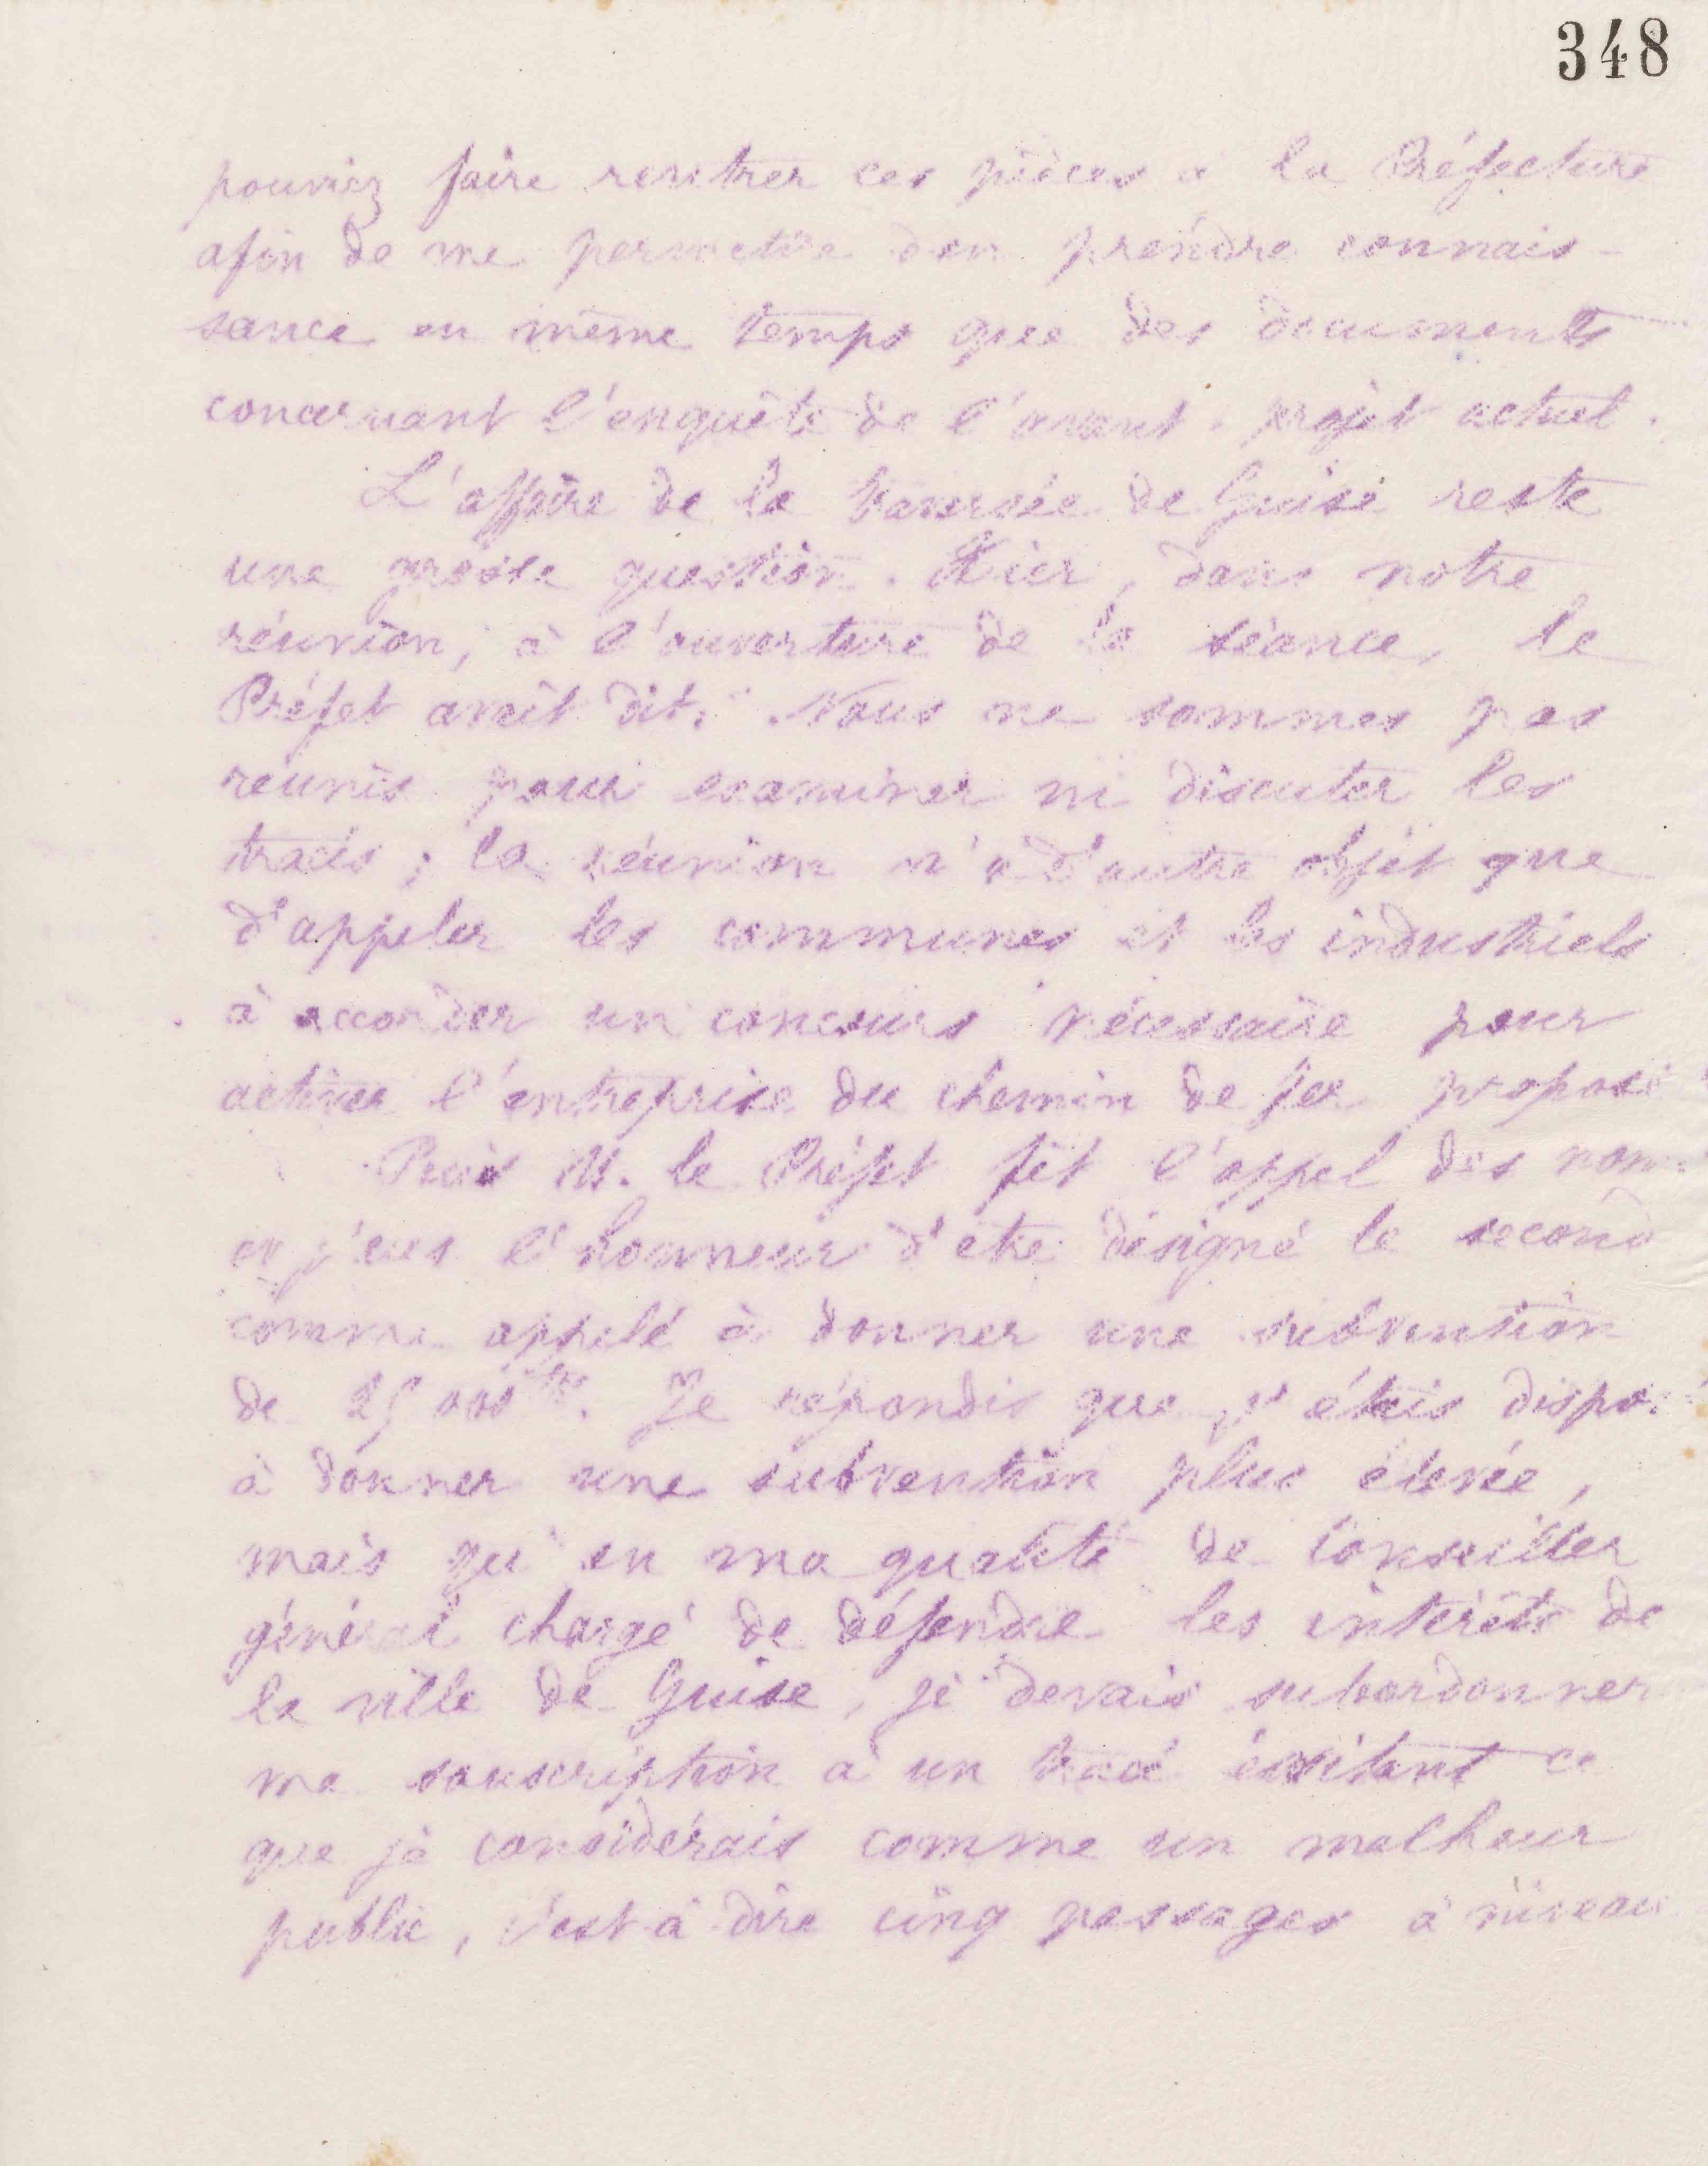 348
pouviez faire rentrer ces pièces à la Préfecture
afin de me permettre d'en prendre connais-
sance en même temps que des documents
concernant l'enquête de l'avant-projet actuel.
L'affaire de la traversée de Guise reste
une grosse question. Hier, dans notre
réunion, à l'ouverture de la séance, le
Préfet avait dit: Nous ne sommes pas
réunis pour examiner ni discuter les
tracés; la réunion n'a d'autre objet que
d'appeler les communes et les industriels
à accorder un concours nécessaire pour
activer l'entreprise du chemin de fer proposé
Puis M. le Préfet fit l'appel des noms
et j'eus l'honneur d'être désigné le second
comme appelé à donner une subvention
de 25 000 frs. Je répondis que j'étais dispo.
à donner une subvention plus élevée,
mais qu'en ma qualité de Conseiller
général chargé de défendre les intérêts de
la ville de Guise, je devais subordonner
ma souscription à un tracé évitant ce
que je considérais comme un malheur
public, c'est-à-dire cinq passages à niveau